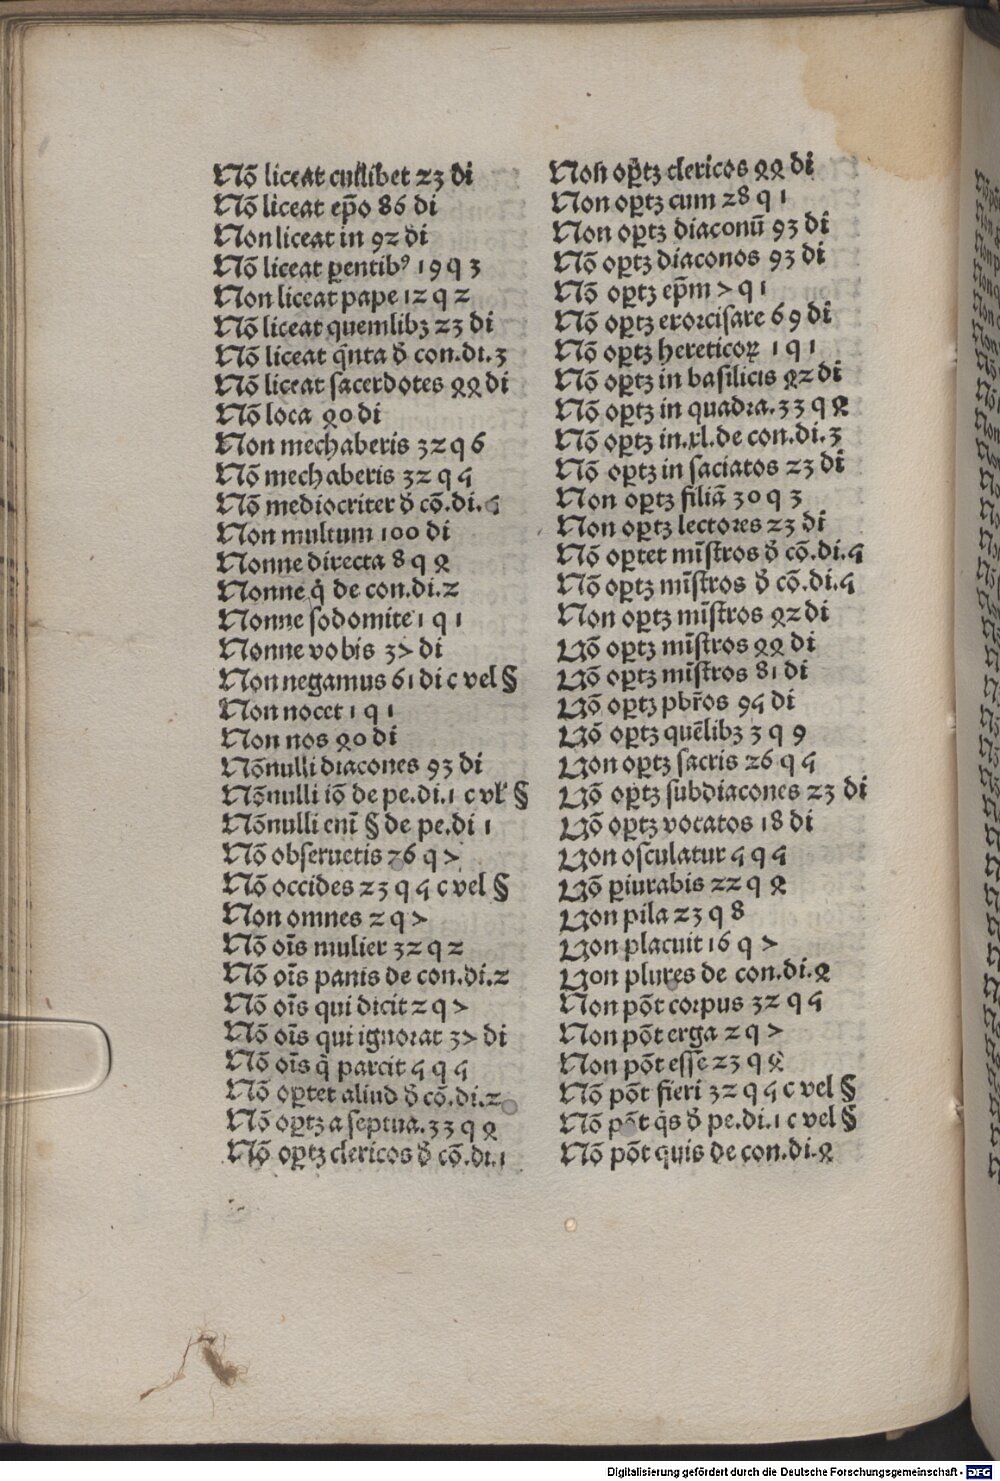 Nō liceat cuilibet 23 di
Nō liceat ep̄o 86 di
Non liceat in 92 di
Nō liceat ꝑentibꝰ 19 q 3
Non liceat pape 12 q 2
Nō liceat quemlibꝫ 23 di
Nō liceat q̄nta đ con.di.3
Nō liceat sacerdotes 44 di
Nō loca 40 di
Non mechaberis 32 q 6
Nō mechaberis 32 q 5
Nō mediocriter đ cō.di.5
Non multum 100 di
Nonne directa 8 q 4
Nonne q̇ de con.di.2
Nonne sodomite 1 q 1
Nonne vobis 37 di
Non negamus 61 di c vel §
Non nocet 1 q 1
Non nos 40 di
Nōnulli diacones 93 di
Nōnulli iō de pe.di.1 c vł §
Nōnulli eni̅ § de pe.di 1
Nō obseruetis 26 q 7
Nō occides 23 q 5 c vel §
Non omnes 2 q 7
Nō oi̅s mulier 32 q 2
Nō oi̅s panis de con.di.2
Nō oi̅s qui dicit 2 q 7
Nō oi̅s qui ignorat 37 di
Nō oi̅s q̇ parcit 5 q 5
Nō oꝑtet aliud đ cō.di.2
Nō oꝑtꝫ a septua.33 q 4
Nō oꝑtꝫ clericos đ cō.di.1
Non oꝑtꝫ clericos 44 di
Non oꝑtꝫ cum 28 q 1
Non oꝑtꝫ diaconū 93 di
Nō oꝑtꝫ diaconos 93 di
Nō oꝑtꝫ ep̄m 7 q 1
Nō oꝑtꝫ exorcisare 69 di
Nō oꝑtꝫ hereticoꝝ 1 q 1
Nō oꝑtꝫ in basilicis 42 di
Nō oꝑtꝫ in quadra.33 q 4
Nō oꝑtꝫ in.xl.de con.di.3
Nō oꝑtꝫ in saciatos 23 di
Non oꝑtꝫ filiā 30 q 3
Non oꝑtꝫ lectores 23 di
Nō oꝑtet mi̅stros đ cō.di.5
Nō oꝑtꝫ mi̅stros đ cō.di.5
Non oꝑtꝫ mi̅stros 42 di
Nō oꝑtꝫ mi̅stros 44 di
Nō oꝑtꝫ mi̅stros 81 di
Nō oꝑtꝫ pbr̄os 95 di
Nō oꝑtꝫ quēlibꝫ 3 q 9
Non oꝑtꝫ sacris 26 q 5
Nō oꝑtꝫ subdiacones 23 di
Nō oꝑtꝫ vocatos 18 di
Non osculatur 5 q 5
Nō ꝑiurabis 22 q 4
Non pila 23 q 8
Non placuit 16 q 7
Non plures de con.di.4
Non pōt corpus 32 q 5
Non pōt erga 2 q 7
Non pōt esse 23 q 4
Nō pōt fieri 32 q 5 c vel §
Nō pōt q̇s đ pe.di.1 c vel §
Nō pōt quis de con.di.4
Digitalisierung gefördert durch die Deutsche Forschungsgemeinschaft - DFG